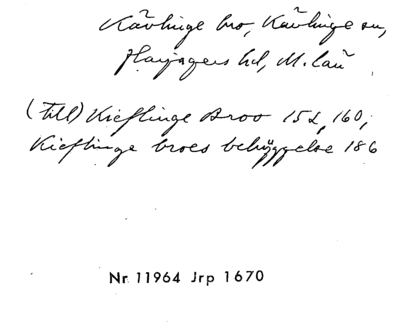 Kävlinge bro, Kävlinge sn,
Harjagers hd, M. län
(till) Kieflinge Broo 152, 160,
Kieflinge broes behyggelse 186
Nr 11964 Jrp 1670